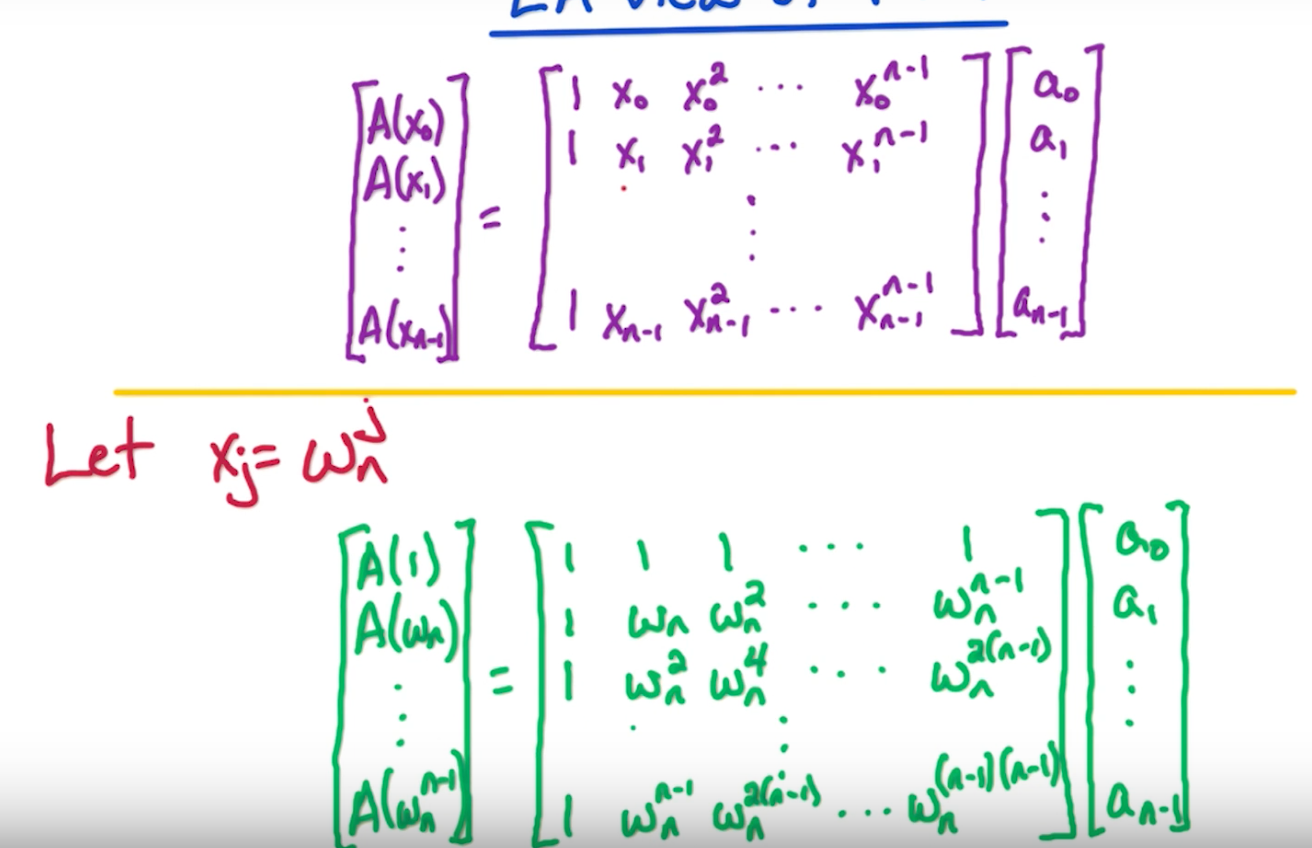 LA View of
[A(x₀) A(x₁) ⋮ A(xₙ₋₁)] = [1 x₀ x₀² ⋯ x₀ⁿ⁻¹; 1 x₁ x₁² ⋯ x₁ⁿ⁻¹; ⋮; 1 xₙ₋₁ xₙ₋₁² ⋯ xₙ₋₁ⁿ⁻¹] [a₀ a₁ ⋮ aₙ₋₁]
Let xⱼ = ωₙʲ
[A(1) A(ωₙ) ⋮ A(ωₙⁿ⁻¹)] = [1 1 1 ⋯ 1; 1 ωₙ ωₙ² ⋯ ωₙⁿ⁻¹; 1 ωₙ² ωₙ⁴ ⋯ ωₙ²⁽ⁿ⁻¹⁾; ⋮; 1 ωₙⁿ⁻¹ ωₙ²⁽ⁿ⁻¹⁾ ⋯ ωₙ⁽ⁿ⁻¹⁾⁽ⁿ⁻¹⁾] [a₀ a₁ ⋮ aₙ₋₁]